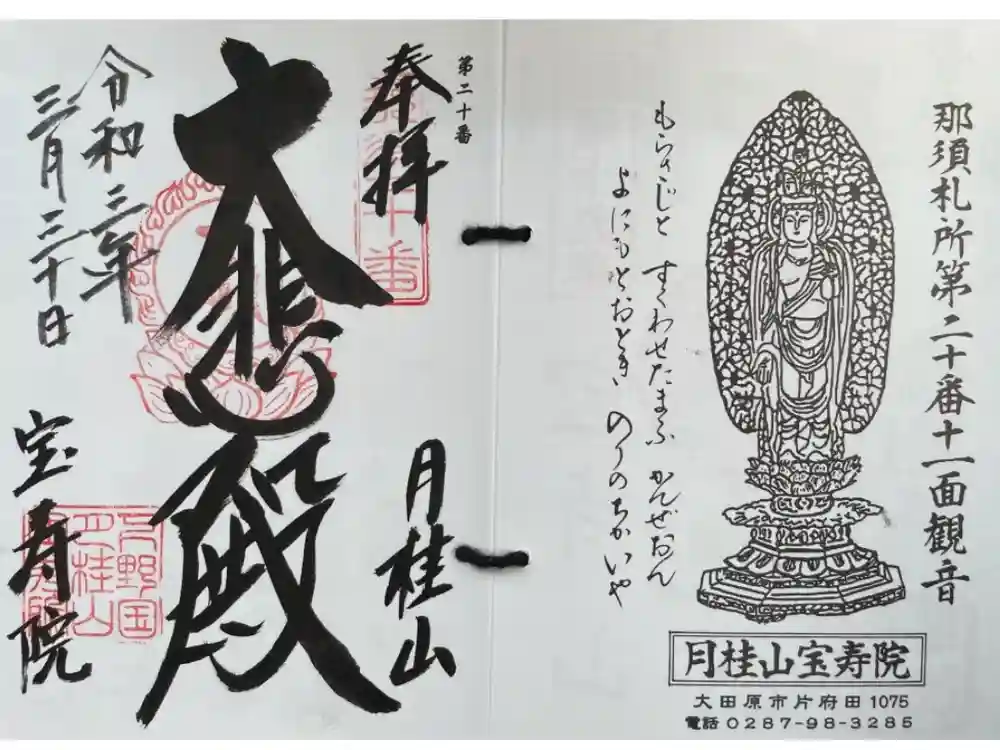 那須札所第二十番十一面観音
月桂山宝寿院
大田原市片府田1075
電話0287-98-3285
もらさじと すくわせたまふ かんぜおん
よにもとおとき のりのちかいや
第二十番
奉拝
月桂山
大悲殿
令和三年
三月三十日
宝寿院
下野国
月桂山